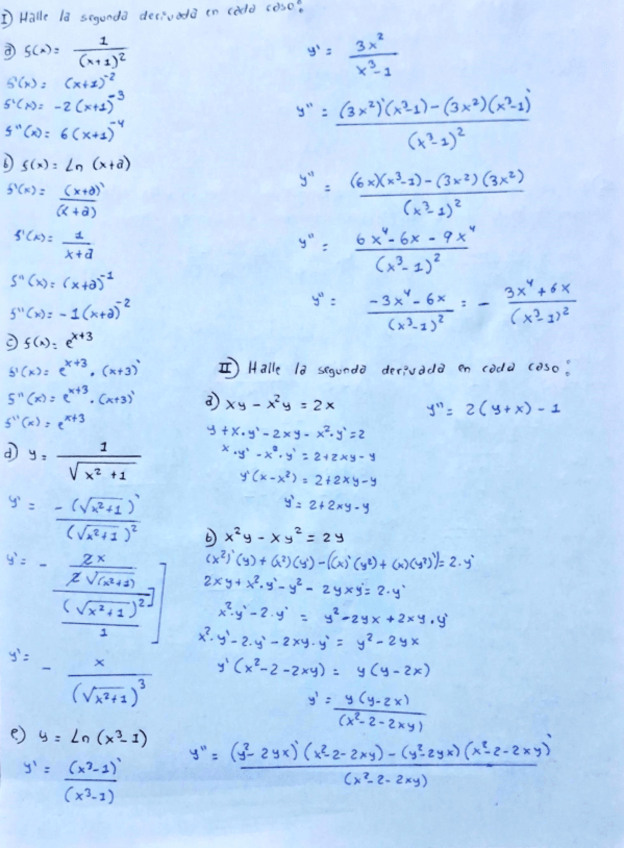 I) Halle la segunda derivada en cada caso:
a) f(x) = 1/(x+1)²
f'(x) = (x+1)⁻²
f'(x) = -2(x+1)⁻³
f''(x) = 6(x+1)⁻⁴
b) f(x) = Ln (x+a)
f'(x) = (x+a)'/(x+a)
f'(x) = 1/(x+a)
f''(x) = (x+a)⁻¹
f''(x) = -1(x+a)⁻²
c) f(x) = e^(x+3)
f'(x) = e^(x+3) . (x+3)'
f''(x) = e^(x+3) . (x+3)'
f''(x) = e^(x+3)
d) y = 1/√(x²+1)
y' = -(√(x²+1))'/(√(x²+1))²
y' = - [(2x/(2√(x²+1)))/((√(x²+1))²/1)]
y' = - x/(√(x²+1))³
e) y = Ln (x³-1)
y' = (x³-1)'/(x³-1)
y' = 3x²/(x³-1)
y'' = ((3x²)'(x³-1) - (3x²)(x³-1)')/(x³-1)²
y'' = ((6x)(x³-1) - (3x²)(3x²))/(x³-1)²
y'' = (6x⁴-6x - 9x⁴)/(x³-1)²
y'' = (-3x⁴-6x)/(x³-1)² = - (3x⁴+6x)/(x³-1)²
II) Halle la segunda derivada en cada caso:
a) xy - x²y = 2x
y + x.y' - 2xy - x².y' = 2
x.y' - x².y' = 2+2xy-y
y'(x-x²) = 2+2xy-y
y' = 2+2xy-y
y'' = 2(y+x) - 1
b) x²y - xy² = 2y
(x²)'(y) + (x²)(y') - ((x)'(y²) + (x)(y²)') = 2.y'
2xy + x².y' - y² - 2yxy' = 2.y'
x².y' - 2.y' = y² - 2yx + 2xy.y'
x².y' - 2.y' - 2xy.y' = y² - 2yx
y'(x²-2-2xy) = y(y-2x)
y' = y(y-2x)/(x²-2-2xy)
y'' = ((y²-2yx)'(x²-2-2xy) - (y²-2yx)(x²-2-2xy)')/(x²-2-2xy)